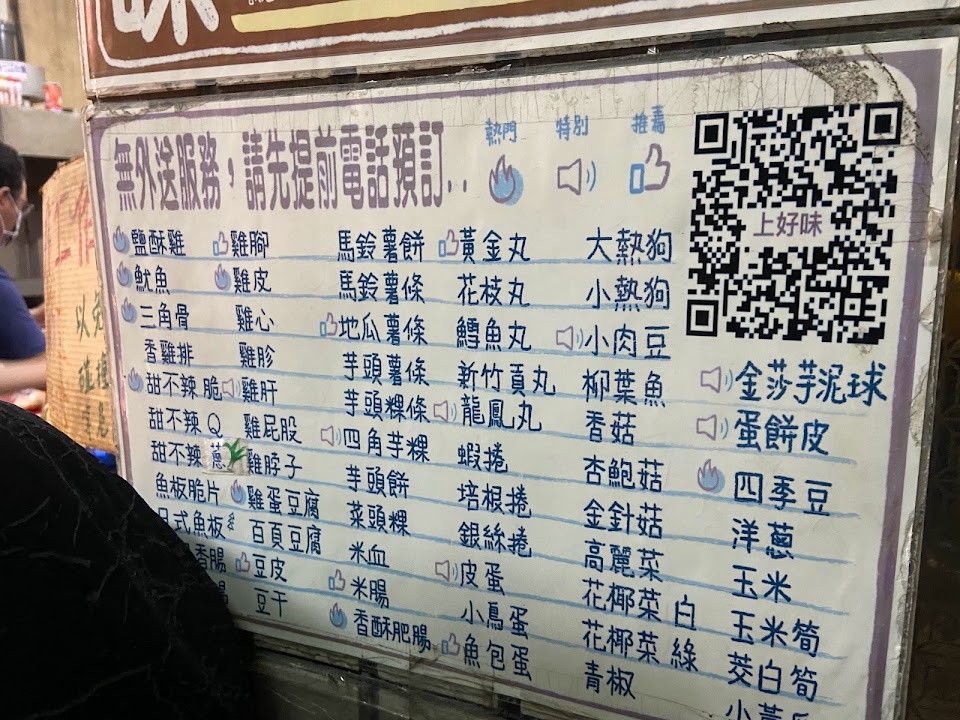 味
無外送服務，請先提前電話預訂..
熱門
特別
推薦
上好味
鹽酥雞
魷魚
三角骨
香雞排
甜不辣 脆
甜不辣 Q
甜不辣 蔥
魚板脆片
日式魚板
香腸
雞腳
雞皮
雞心
雞胗
雞肝
雞屁股
雞脖子
雞蛋豆腐
百頁豆腐
豆皮
豆干
馬鈴薯餅
馬鈴薯條
地瓜薯條
芋頭薯條
芋頭粿條
四角芋粿
芋頭餅
菜頭粿
米血
米腸
香酥肥腸
黃金丸
花枝丸
鱈魚丸
新竹貢丸
龍鳳丸
蝦捲
培根捲
銀絲捲
皮蛋
小鳥蛋
魚包蛋
大熱狗
小熱狗
小肉豆
柳葉魚
香菇
杏鮑菇
金針菇
高麗菜
花椰菜 白
花椰菜 綠
青椒
金莎芋泥球
蛋餅皮
四季豆
洋蔥
玉米
玉米筍
茭白筍